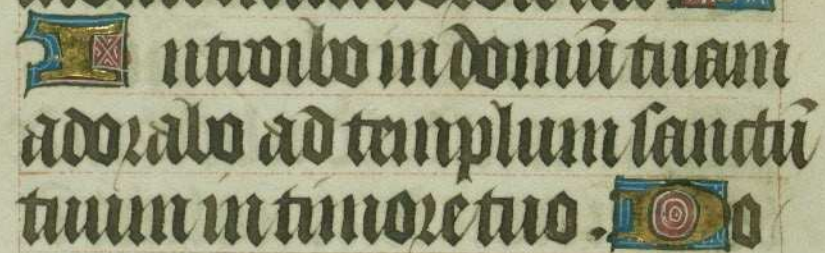 Introibo in domū tuam
adorabo ad templum sanctū
tuum in timore tuo. Do